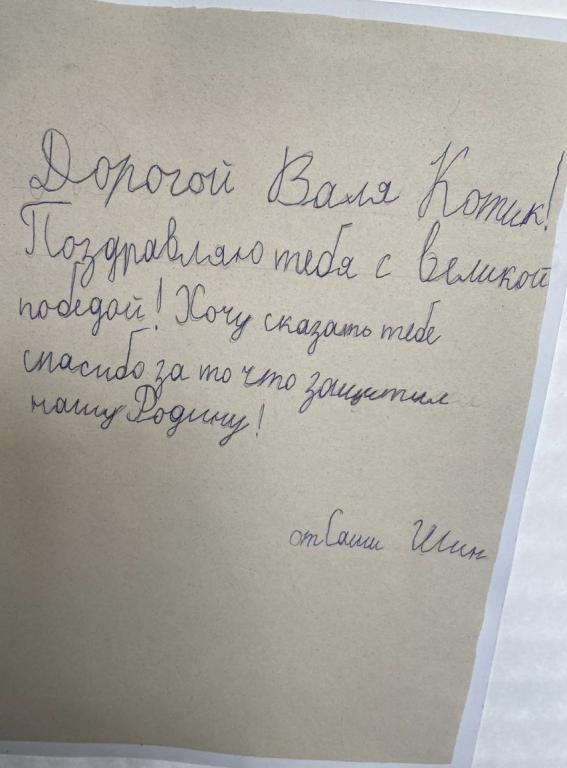 Дорогой Валя Котик!
Поздравляю тебя с великой
победой! Хочу сказать тебе
спасибо за то что защитил
нашу Родину!
от Саши Шин